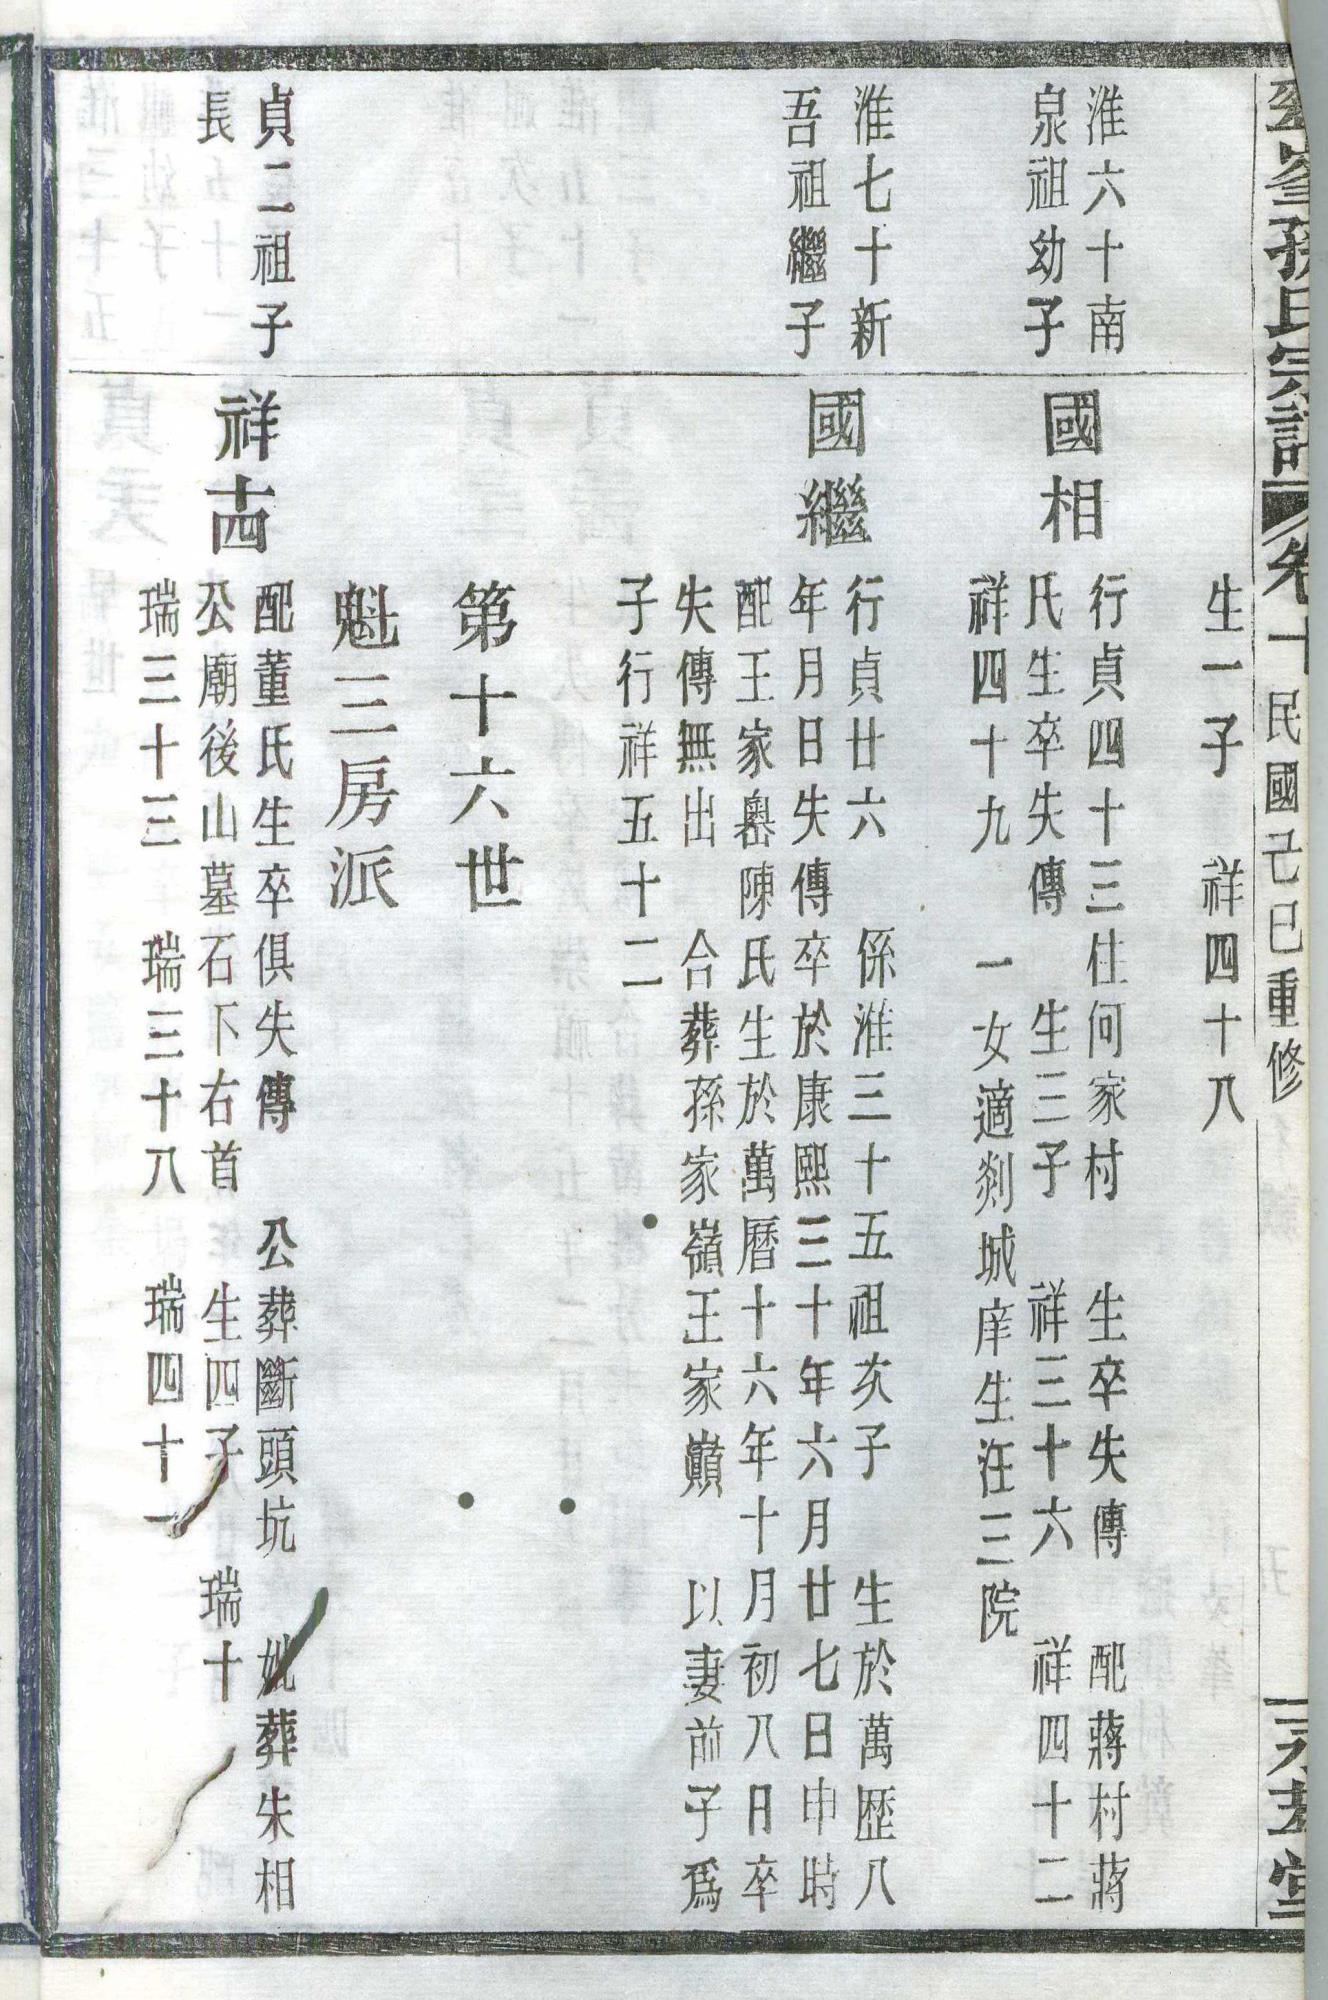 孫氏宗譜 卷十 民國己巳重修
生一子 祥四十八
淮六十南
泉祖幼子
國相
行貞四十三住何家村 生卒失傳 配蔣村蔣
氏生卒失傳 生三子 祥三十六 祥四十二
祥四十九 一女適剡城庠生汪三院
淮七十新
吾祖繼子
國繼
行貞廿六 係淮三十五祖次子 生於萬歷八
年月日失傳卒於康熙三十年六月廿七日申時
配王家嶴陳氏生於萬曆十六年十月初八日卒
失傳無出 合葬孫家嶺王家巔 以妻前子爲
子行祥五十二
第十六世
魁三房派
貞二祖子
長
祥十四
配董氏生卒俱失傳 公葬斷頭坑 妣葬朱相
公廟後山墓石下右首 生四子 瑞十
瑞三十三 瑞三十八 瑞四十一